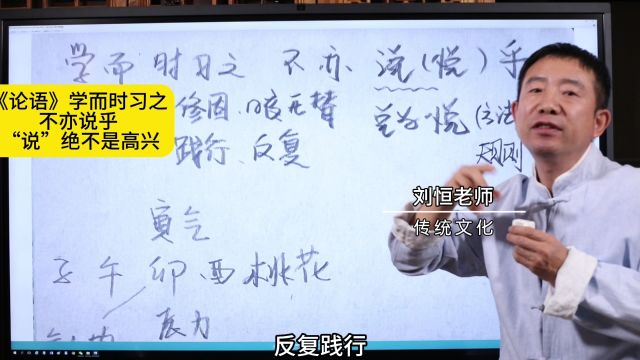 学而时习之 不亦说(悦)乎
《论语》学而时习之
不亦说乎
“说”绝不是高兴
修因
兑为悦
践行、反复
规则
刘恒老师
传统文化
寅气
子午卯酉桃花
辰力
反复践行